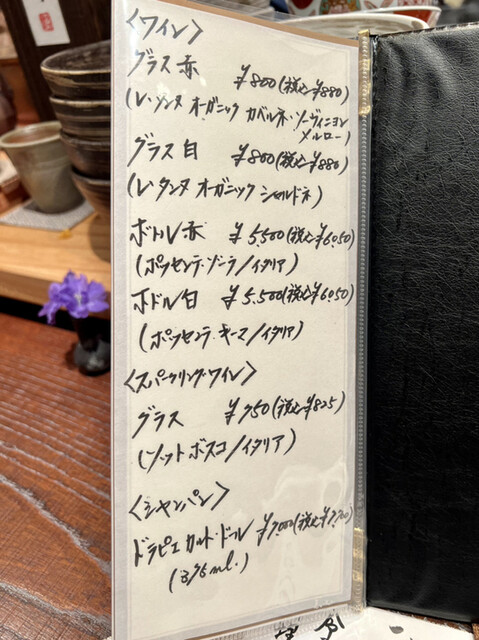 〈ワイン〉
グラス 赤 ¥800(税込¥880)
(レ・タンヌ オーガニック カベルネ・ソーヴィニヨン
メルロー)
グラス 白 ¥800(税込¥880)
(レ・タンヌ オーガニック シャルドネ)
ボトル 赤 ¥5,500(税込¥6050)
(ポッセンテ・ゾーラ/イタリア)
ボトル 白 ¥5,500(税込¥6050)
(ポッセンテ・キーマ/イタリア)
〈スパークリング・ワイン〉
グラス ¥750(税込¥825)
(ソットボスコ/イタリア)
〈シャンパン〉
ドラピエ カルト・ドール ¥7,000(税込¥7,700)
(375ml.)